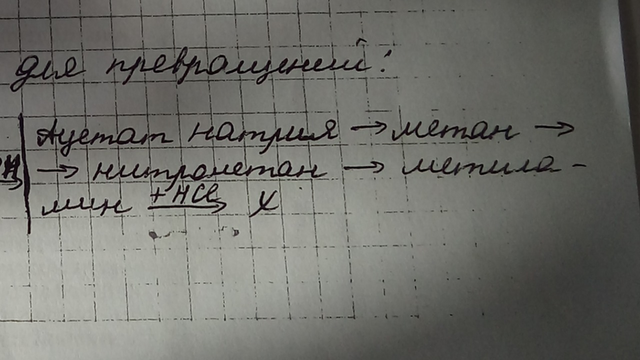 для превращений:
Ацетат натрия → метан →
→ нитрометан → метила-
мин +HCl → X